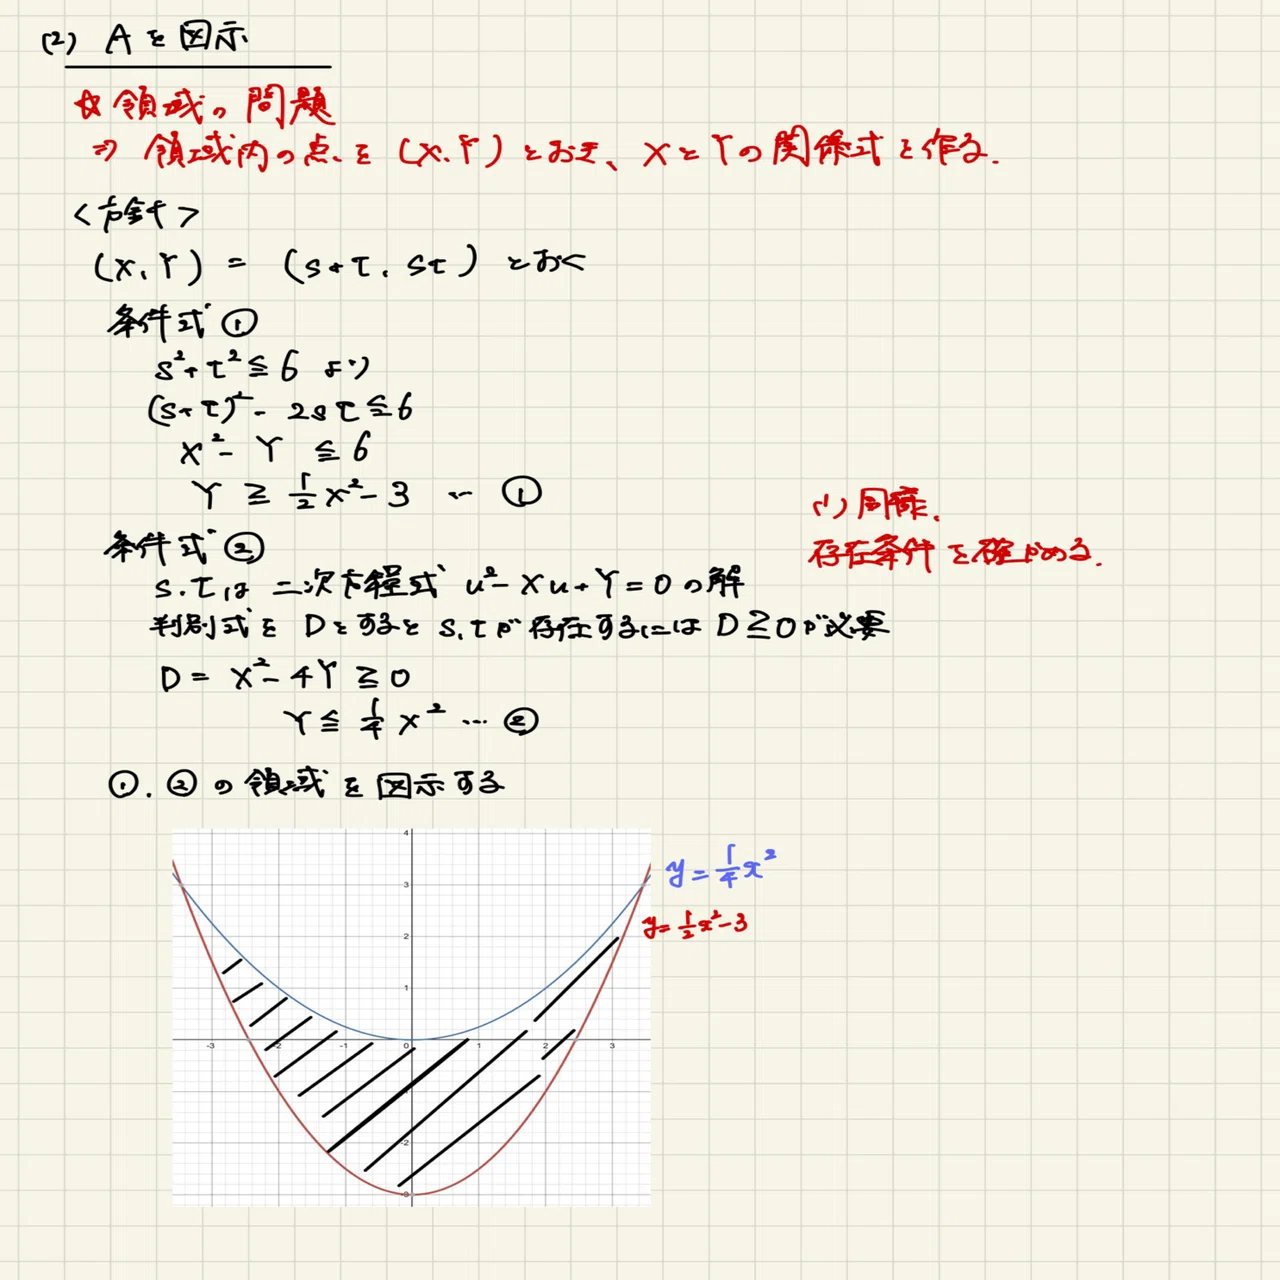 (2) Aを図示
☆ 領域の問題
⇒ 領域内の点を (X, Y) とおき、XとYの関係式を作る.
<方針>
(X, Y) = (s+t, st) とおく
条件式①
s²+t² ≦ 6 より
(s+t)² - 2st ≦ 6
X² - Y ≦ 6
Y ≧ 1/2 X² - 3 … ①
(1) 同様、
存在条件を確かめる.
条件式②
s, tは 二次方程式 u² - Xu + Y = 0 の解
判別式を Dとすると s, tが存在するには D≧0が必要
D = X² - 4Y ≧ 0
Y ≦ 1/4 X² … ②
①, ②の領域を図示する
y = 1/4 x²
y = 1/2 x² - 3
4
3
2
1
-3 -2 -1 0 1 2 3
-2
-3